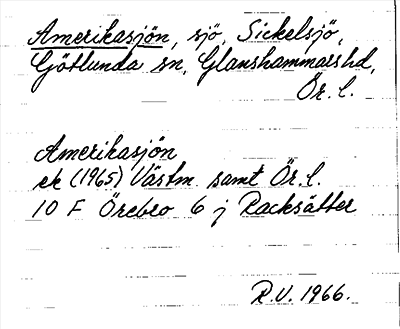 Amerikasjön, sjö, Sickelsjö,
Götlunda sn, Glanshammars hd,
Ör. l.
Amerikasjön
ek (1965) Västm. samt Ör. l.
10 F Örebro 6 j Racksätter
R.V. 1966.